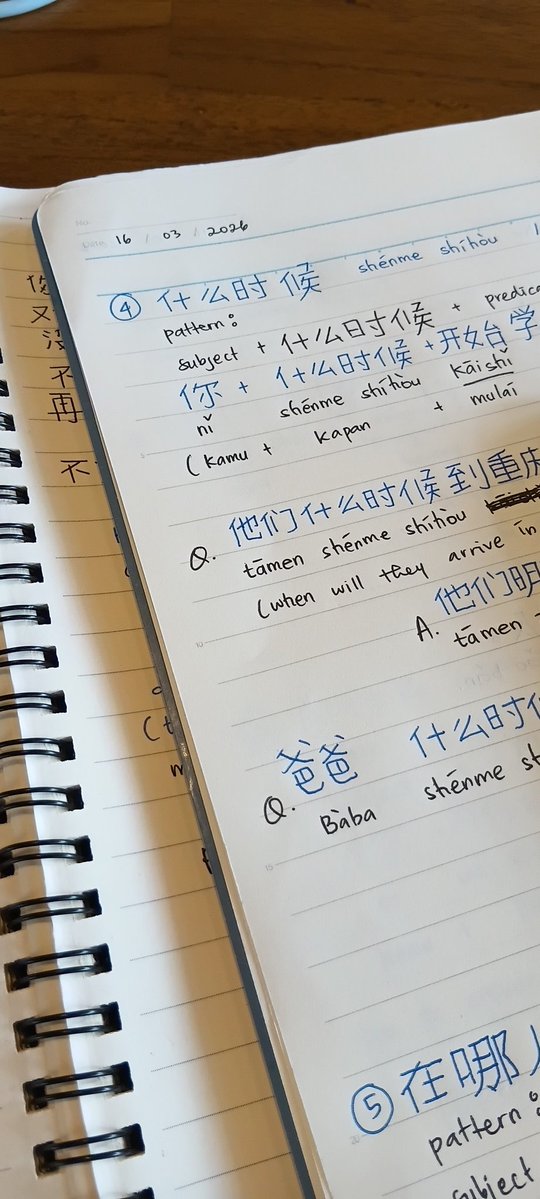 No.
Date 16 / 03 / 2026
④ 什么时候 shénme shíhòu
pattern:
subject + 什么时候 +
你 + 什么时候 + 开始 学
nǐ shénme shíhòu kāishǐ
(kamu + kapan + mulai
Q. 他们什么时候到重
tāmen shénme shíhòu
(when will they arrive in
A. 他们明
tāmen
Q. 爸爸 什么时
Bàba shénme
⑤ 在哪
pattern:
subject
又
没
不
再
不